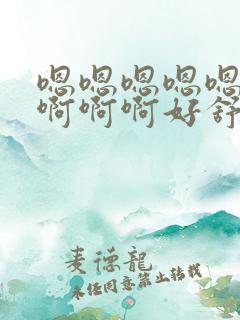 嗯嗯嗯嗯嗯
啊啊啊好舒
麦德龙
未经同意禁止转载